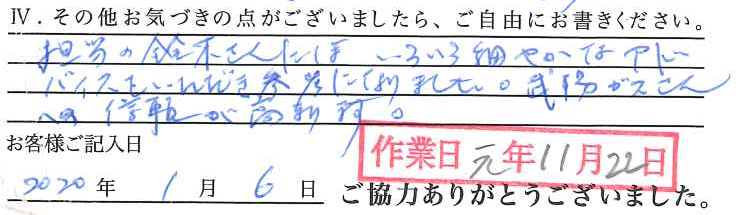 Ⅳ．その他お気づきの点がございましたら、ご自由にお書きください。
担当の鈴木さんには いろいろ細やかなアド
バイスをいただき参考になりました。武陽ガスさん
への信頼が
お客様ご記入日
作業日 元年11月22日
2020年 1月 6日 ご協力ありがとうございました。